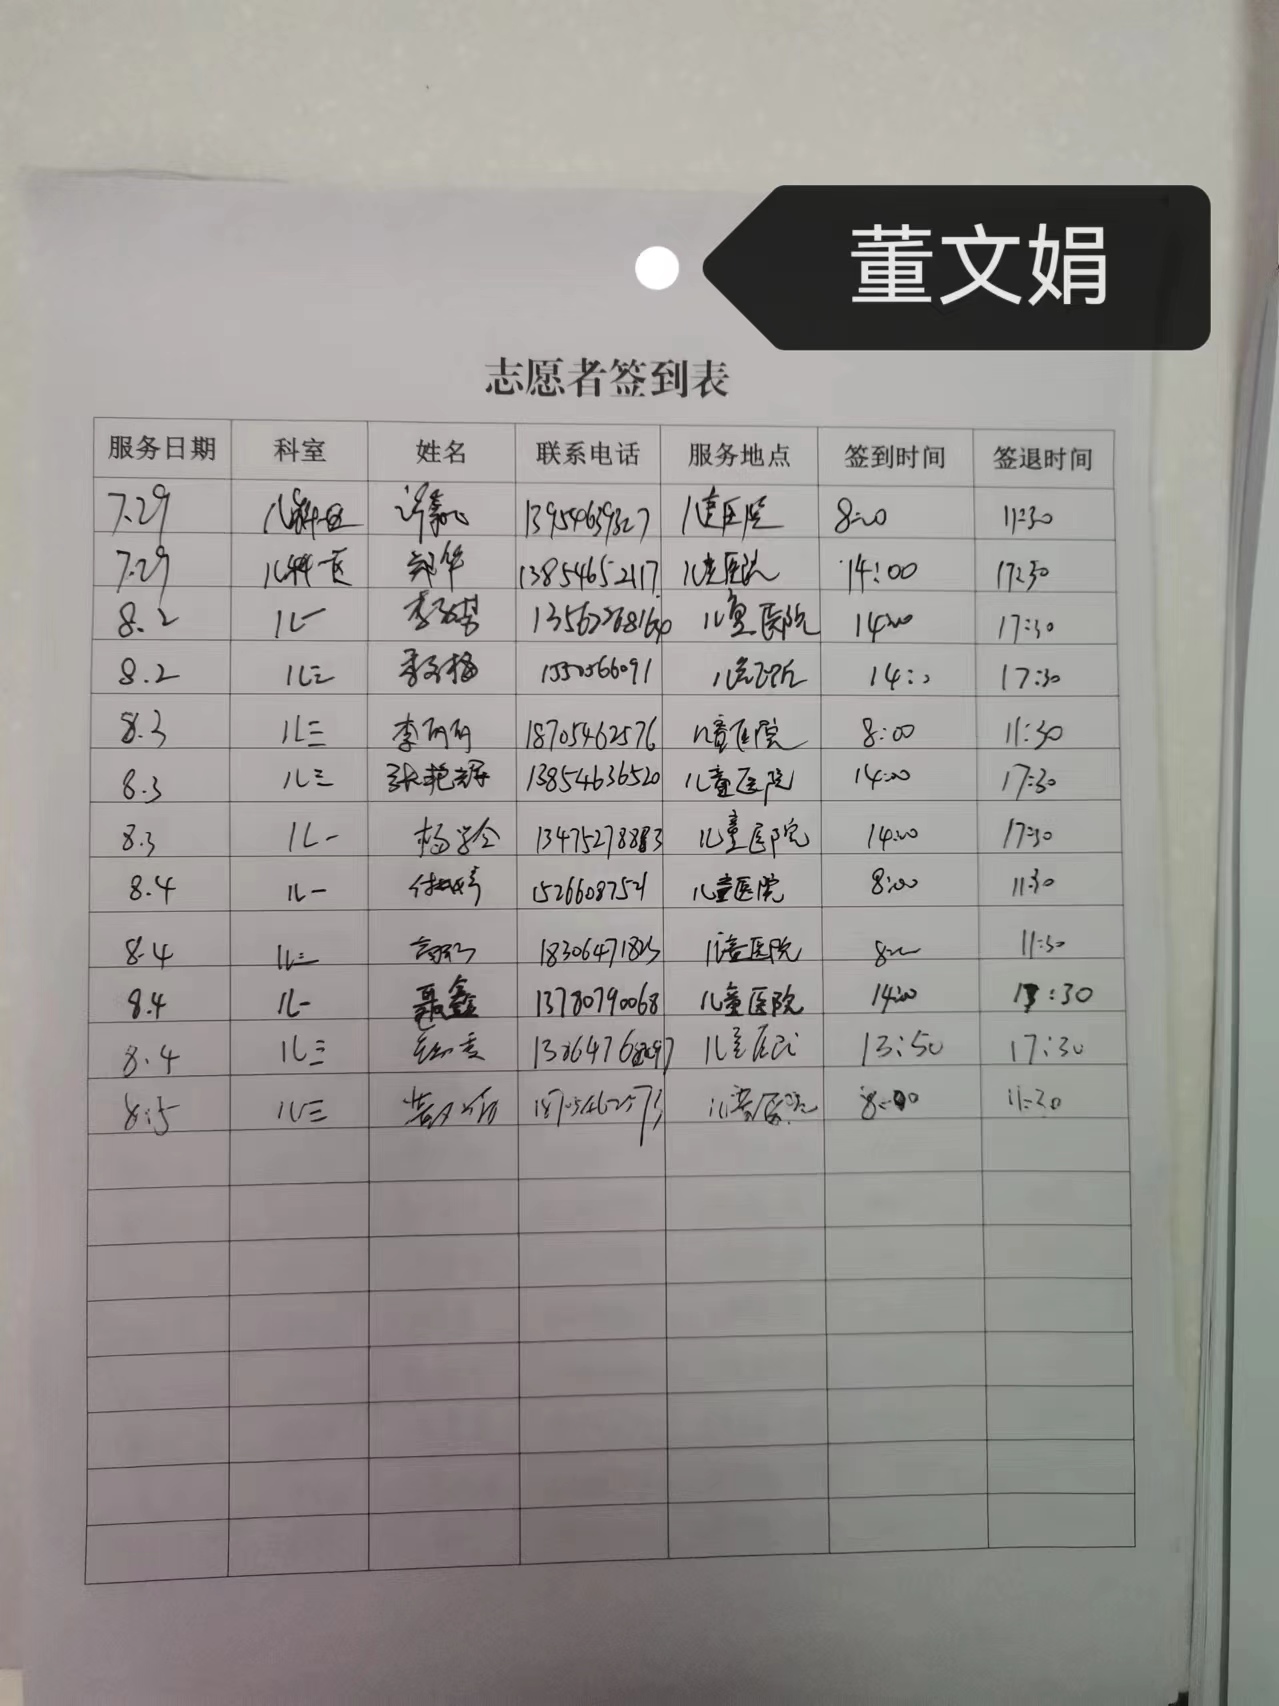 董文娟
志愿者签到表
服务日期 科室 姓名 联系电话 服务地点 签到时间 签退时间
7.29 儿科一区 13954639327 儿童医院 8:00 11:30
7.29 儿科一区 郭华 13854652117 儿童医院 14:00 17:30
8.2 儿一 儿童医院 14:00 17:30
8.2 儿三 李文梅 1550566091 儿童医院 14:00 17:30
8.3 儿三 李丽丽 18705462576 儿童医院 8:00 11:30
8.3 儿三 张艳辉 13854636520 儿童医院 14:00 17:30
8.3 儿一 杨学会 13475278883 儿童医院 14:00 17:30
8.4 儿一 儿童医院 8:00 11:30
8.4 儿三 儿童医院 8:00 11:30
8.4 儿一 聂鑫 13780790068 儿童医院 14:00 17:30
8.4 儿三 儿童医院 13:50 17:30
8.5 儿三 儿童医院 8:00 11:30